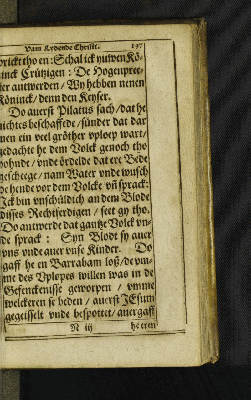 Vam Lydende Christi. 197
prickt tho en: Schal ick yuwen Kö-
ninck Crützigen: De Hogenpree-
ster antwerden/ Wy hebben nenen
Köninck/ denn den Keyser.
Do auerst Pilatus sach/ dat he
nichtes beschaffede/ sünder dat dar
nen ein veel gröther vploep wart/
gedachte he dem Volck genoch tho
dohnde/ vnde ördelde dat ere Bede
geschege/ nam Water vnde wusch
de hende vor dem Volcke vñ sprack:
Ick bin vnschüldich an dem Blode
disses Rechtferdigen/ seet gy tho.
Do antwerde dat gantze Volck vn-
de sprack: Syn Blodt sy auer
vns vnde auer vnse Kinder. Do
gaff he en Barrabam loß/ de vm-
me des Vplopes willen was in de
Gefenckenisse geworpen/ vmme
welckeren se beden/ auerst JEsum
gegeisselt vnde bespottet/ auergaff
N iij he eren